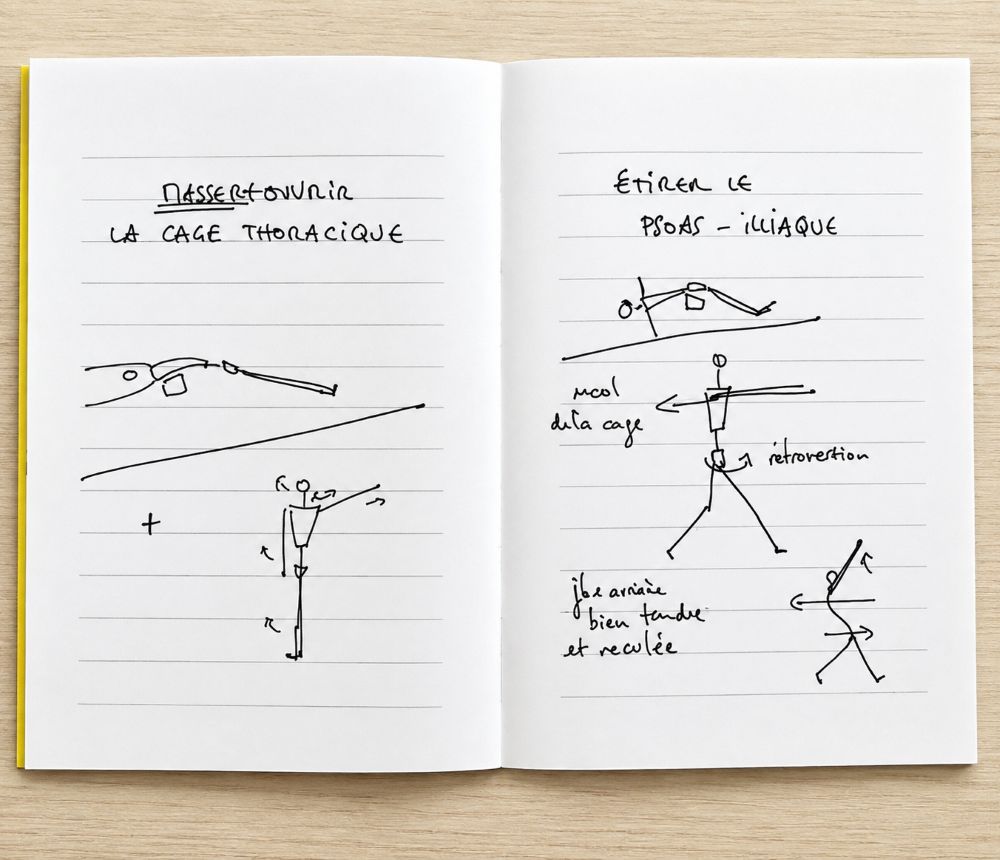 MASSER + OUVRIR
LA CAGE THORACIQUE
+
ÉTIRER LE
PSOAS - iLLiAQUE
de la cage
rétroversion
jbe arrière
bien tendue
et reculée